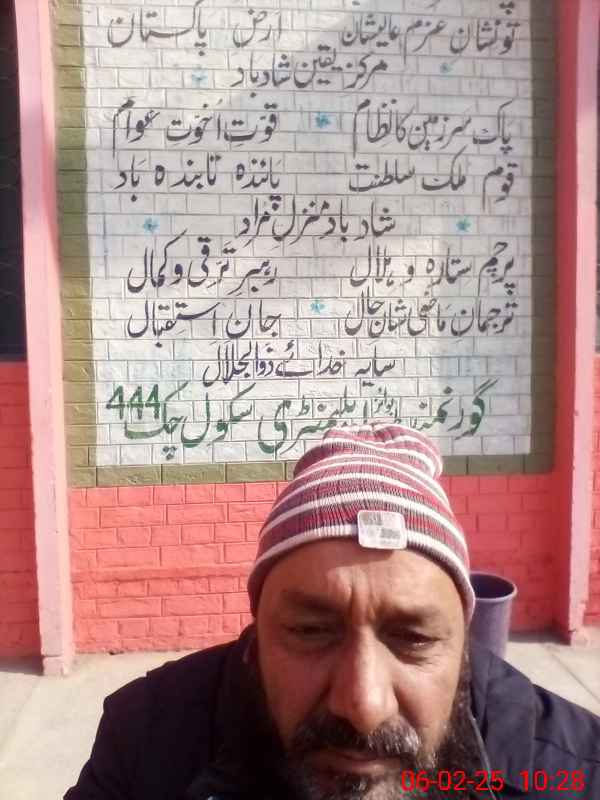 تو نشانِ عزمِ عالیشان ارضِ پاکستان
مرکزِ یقین شادباد
پاک سرزمین کا نظام قوّتِ اُخوّتِ عوام
قوم ملک سلطنت پائندہ تابندہ باد
شادباد منزلِ مراد
پرچمِ ستارہ و ہلال رہبرِ ترقی و کمال
ترجمانِ ماضی شانِ حال جانِ استقبال
سایہ خدائے ذوالجلال
گورنمنٹ بوائز ایلیمنٹری سکول چک 444
06-02-25 10:28